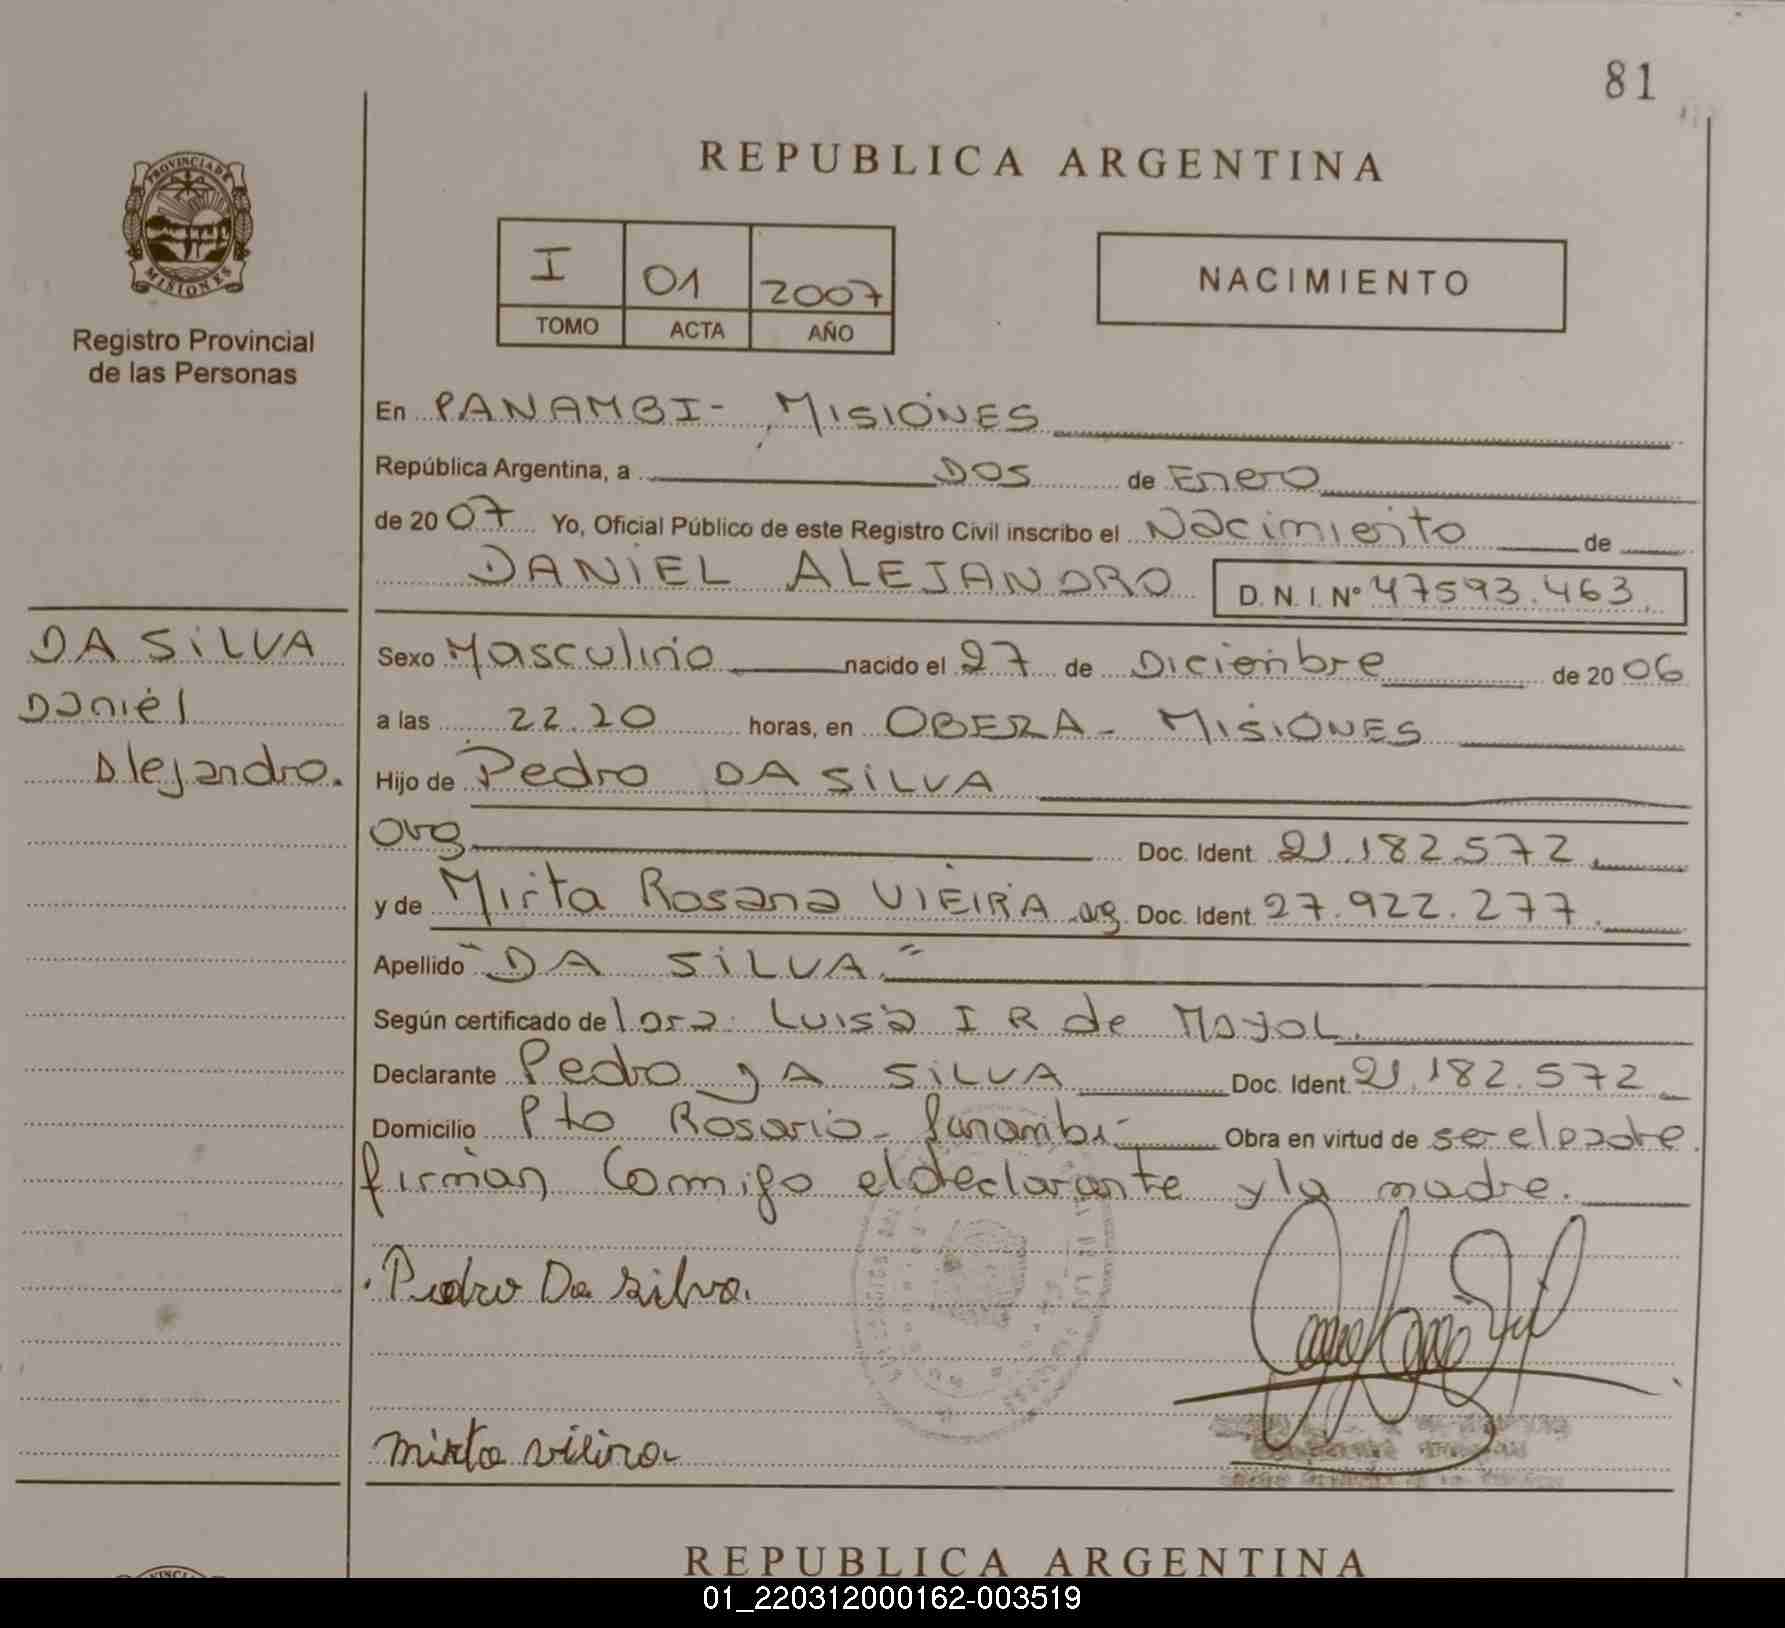 81
REPUBLICA ARGENTINA
PROVINCIA DE
MISIONES
Registro Provincial
de las Personas
I 01 2007
TOMO ACTA AÑO
NACIMIENTO
En PANAMBI - MISIONES
República Argentina, a DOS de Enero
de 2007 Yo, Oficial Público de este Registro Civil inscribo el Nacimiento de
DANIEL ALEJANDRO D.N.I.Nº 47593.463
DA SILVA
Daniel
Alejandro.
Sexo Masculino nacido el 27 de Diciembre de 2006
a las 22.20 horas, en OBERA - MISIONES
Hijo de Pedro DA SILVA
arg Doc. Ident. 21.182.572
y de Mirta Rosana VIEIRA arg. Doc. Ident. 27.922.277.
Apellido "DA SILVA."
Según certificado de Luisa I R de Mayol.
Declarante Pedro DA SILVA Doc. Ident. 21.182.572
Domicilio Pto Rosario - Panambi - Obra en virtud de ser el padre.
firman Comigo el declarante y la madre.
Pedro Da Silva.
Mirta Vieira
REPUBLICA ARGENTINA
01_220312000162-003519